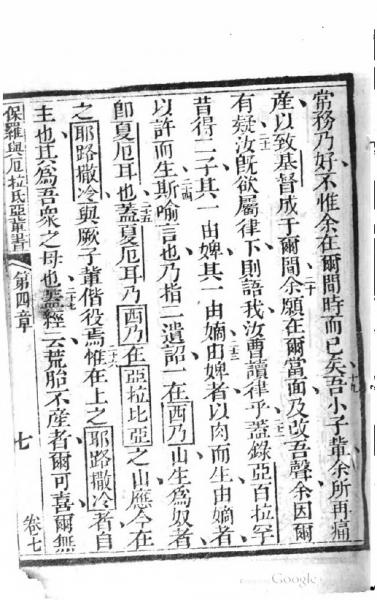 常務乃好不惟余在爾間時而已矣吾小子輩余所再痛
十九
產以致基督成于爾間余願在爾當面及改吾聲余因爾
二十
有疑汝旣欲屬律下則語我汝曹讀律乎蓋錄亞百拉罕
二一
二二
昔得二子其一由婢其一由嫡由婢者以肉而生由嫡者
二三
以許而生斯喻言也乃指二遺詔一在西乃山生為奴者
二四
卽夏厄耳也蓋夏厄耳乃西乃在亞拉比亞之山應今在
二五
之耶路撒冷與厥子輩偕役焉惟在上之耶路撒冷者自
二六
主也其為吾衆之母也蓋經云荒胎不產者爾可喜爾無
二七
保羅與厄拉氏亞輩書
第四章
七
卷七
Google